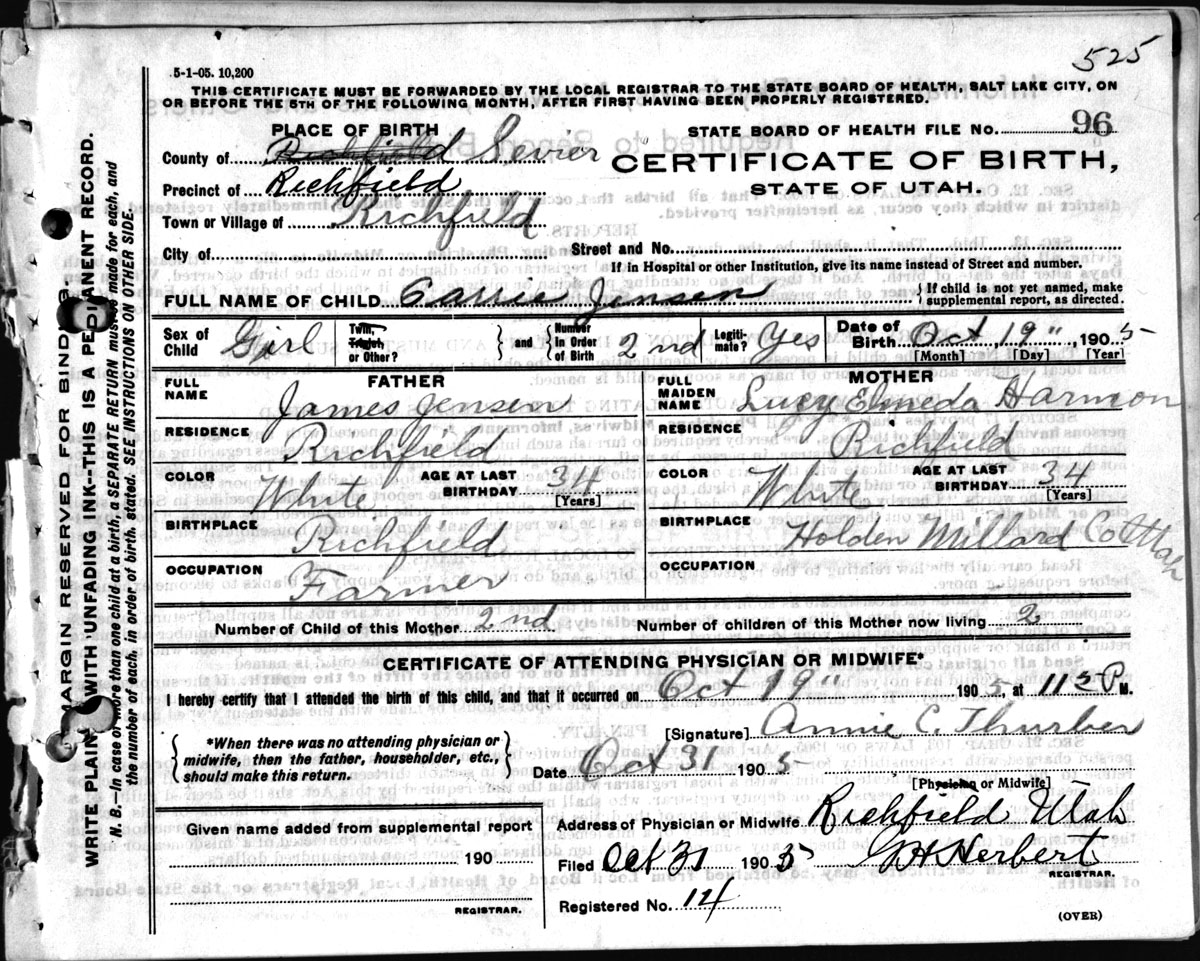 525
5-1-05. 10,200
THIS CERTIFICATE MUST BE FORWARDED BY THE LOCAL REGISTRAR TO THE STATE BOARD OF HEALTH, SALT LAKE CITY, ON
OR BEFORE THE 5TH OF THE FOLLOWING MONTH, AFTER FIRST HAVING BEEN PROPERLY REGISTERED.
PLACE OF BIRTH
STATE BOARD OF HEALTH FILE NO. 96
County of Richfield Sevier
CERTIFICATE OF BIRTH,
STATE OF UTAH.
Precinct of Richfield
Town or Village of Richfield
City of
Street and No.
If in Hospital or other Institution, give its name instead of Street and number.
FULL NAME OF CHILD Carrie Jensen
If child is not yet named, make
supplemental report, as directed.
Sex of Child Girl
Twin, Triplet, or Other?
and
Number in Order of Birth 2nd
Legitimate? Yes
Date of Birth Oct 19", 1905
[Month] [Day] [Year]
FATHER
FULL NAME James Jensen
RESIDENCE Richfield
COLOR White
AGE AT LAST BIRTHDAY 34
[Years]
BIRTHPLACE Richfield
OCCUPATION Farmer
MOTHER
FULL MAIDEN NAME Lucy Elmeda Harmon
RESIDENCE Richfield
COLOR White
AGE AT LAST BIRTHDAY 34
[Years]
BIRTHPLACE Holden Millard Co Utah
OCCUPATION
Number of Child of this Mother 2nd
Number of children of this Mother now living 2
CERTIFICATE OF ATTENDING PHYSICIAN OR MIDWIFE*
I hereby certify that I attended the birth of this child, and that it occurred on Oct 19" 1905, at 11 P M.
*When there was no attending physician or
midwife, then the father, householder, etc.,
should make this return.
[Signature] Annie C. Thurber
Date Oct 31 1905
[Physician or Midwife]
Given name added from supplemental report
190
REGISTRAR.
Address of Physician or Midwife Richfield Utah
Filed Oct 31 1905 Herbert
REGISTRAR.
Registered No. 14
(OVER)
MARGIN RESERVED FOR BINDING.
WRITE PLAINLY WITH UNFADING INK--THIS IS A PERMANENT RECORD.
N. B.—In case of more than one child at a birth, a SEPARATE RETURN must be made for each, and
the number of each, in order of birth, stated. SEE INSTRUCTIONS ON OTHER SIDE.